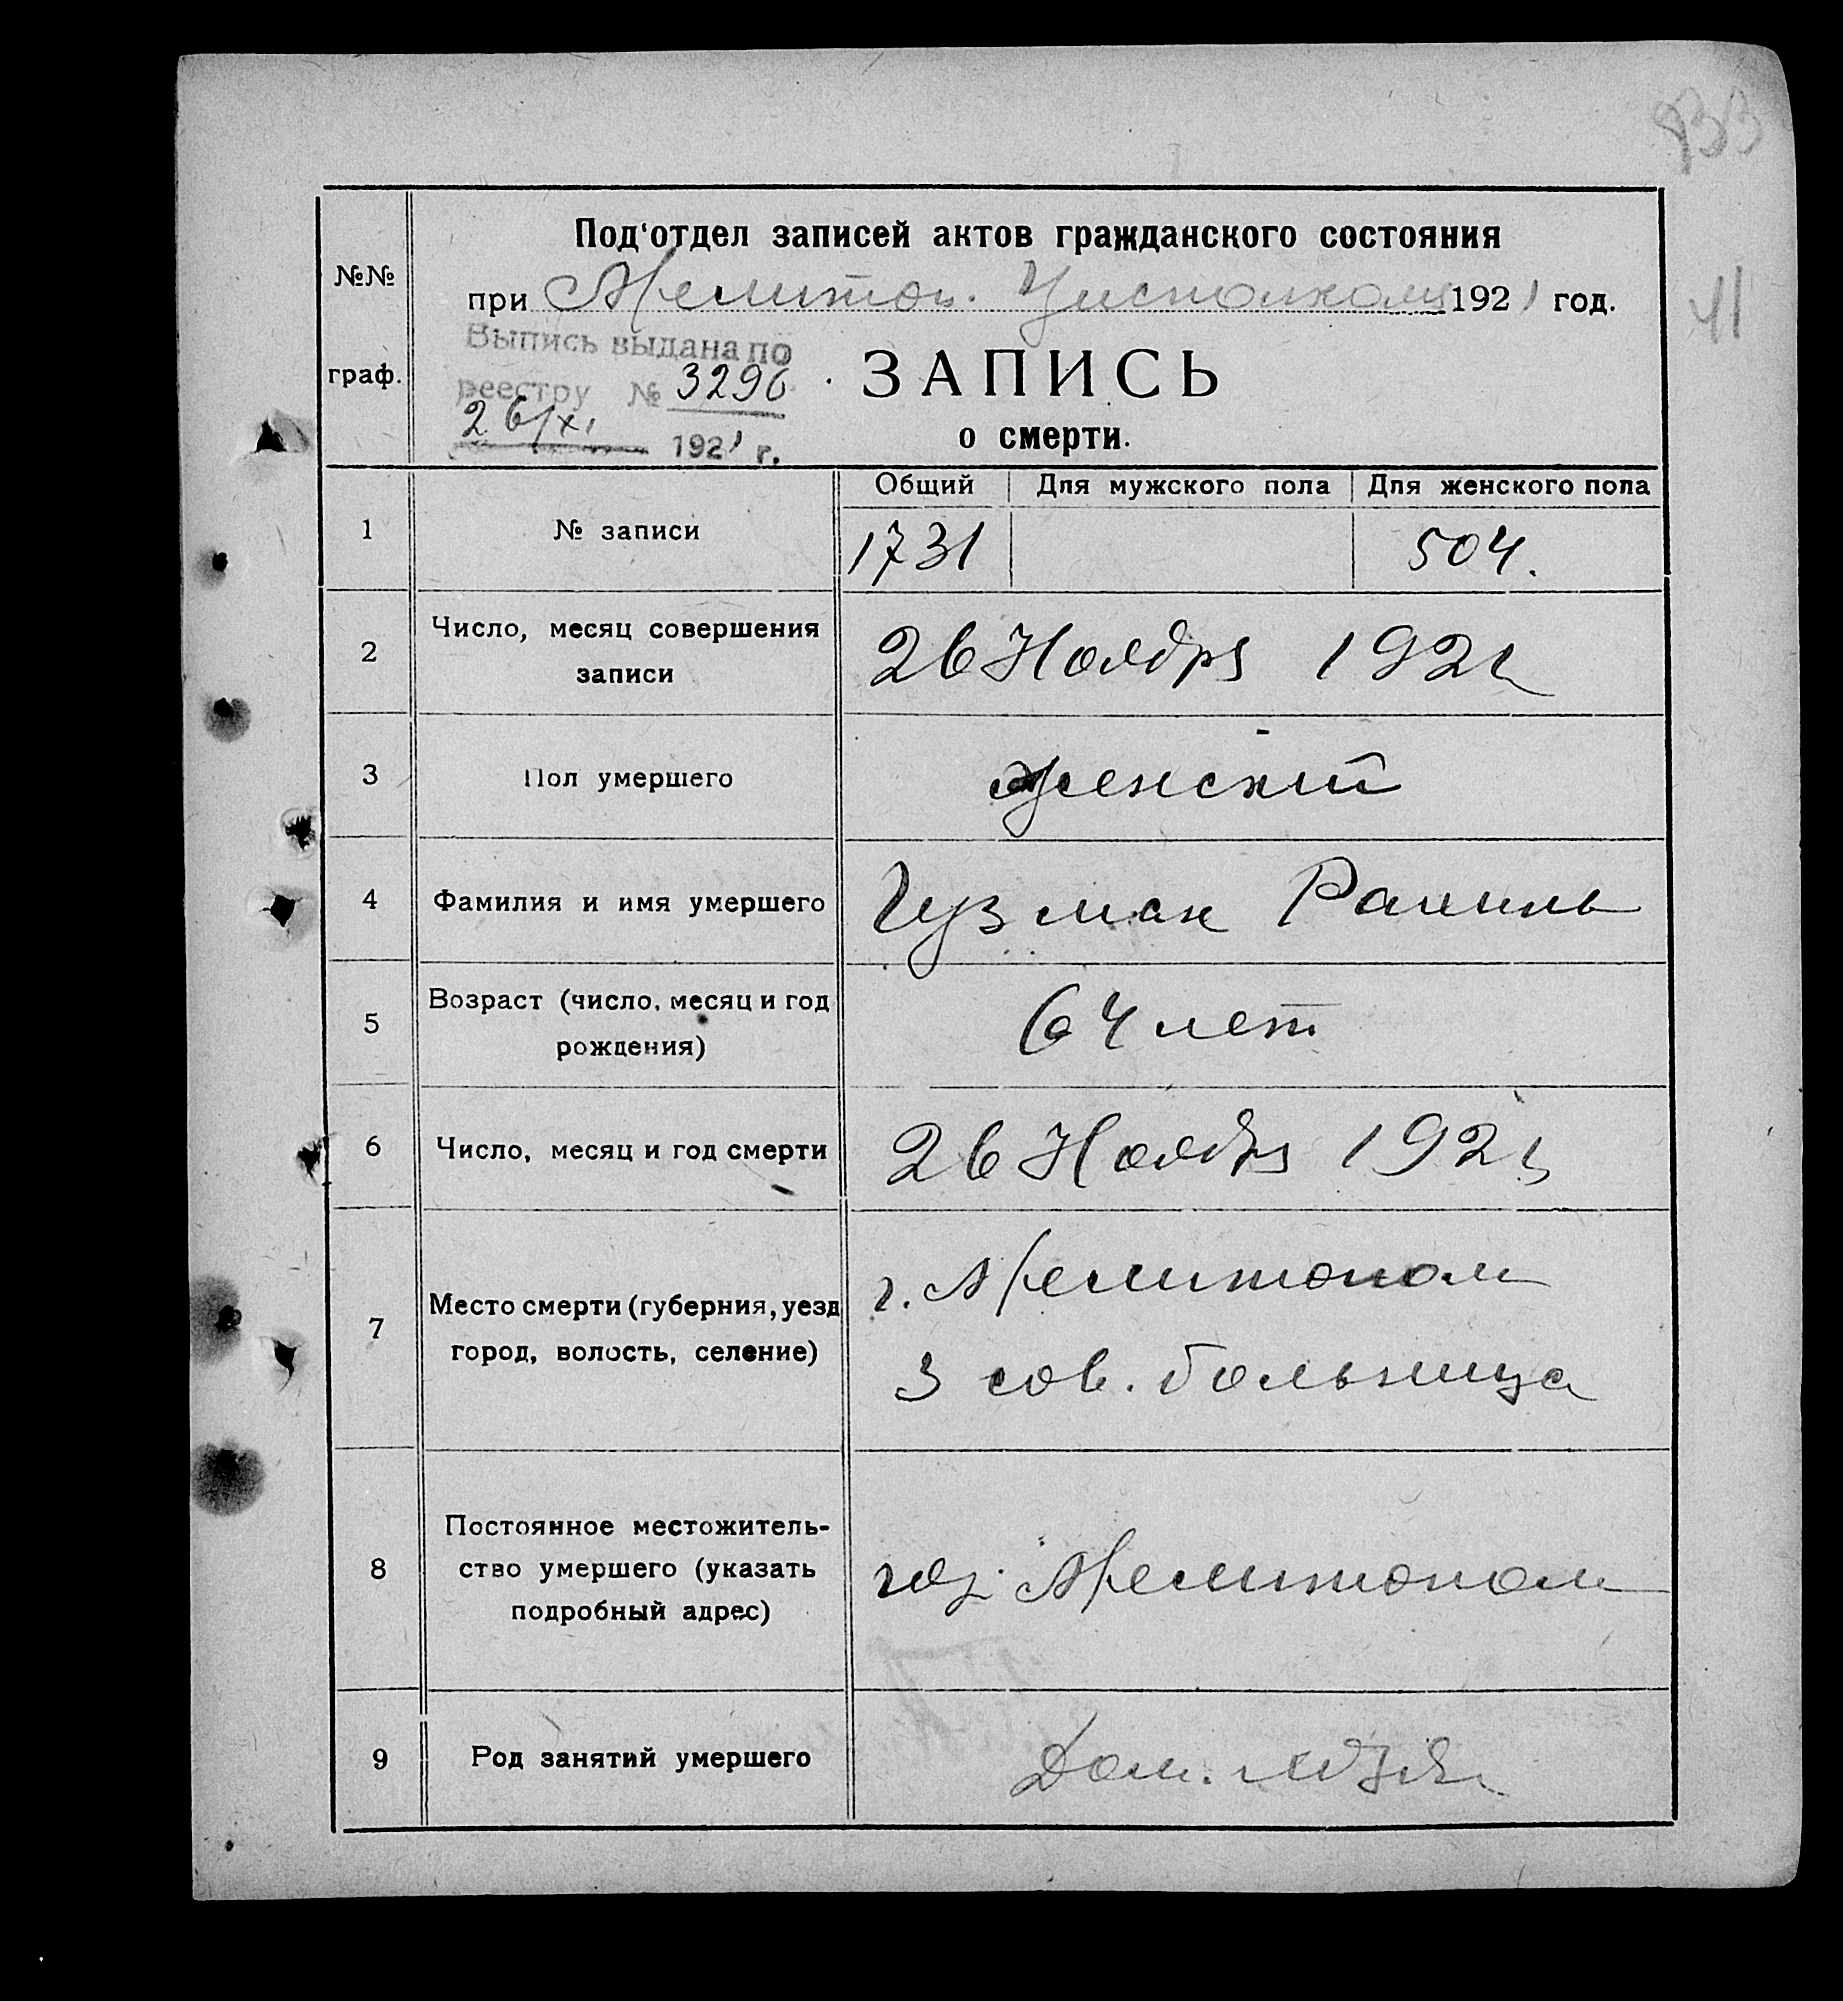 833
41
№№ граф.
Под'отдел записей актов гражданского состояния
при Мелитоп. Уисполкоме 1921 год.
Выпись выдана по
реестру № 3296
26/XI 1921 г.
ЗАПИСЬ
о смерти.
Общий Для мужского пола Для женского пола
1 № записи 1731 504.
2 Число, месяц совершения
записи
26 Ноября 1921
3 Пол умершего женский
4 Фамилия и имя умершего Гузман Рахиль
5 Возраст (число, месяц и год
рождения)
64 лет
6 Число, месяц и год смерти 26 Ноября 1921
7 Место смерти (губерния, уезд
город, волость, селение)
г. Мелитополь
3 сов. больница
8 Постоянное местожитель-
ство умершего (указать
подробный адрес)
гор. Мелитополь
9 Род занятий умершего Дом.